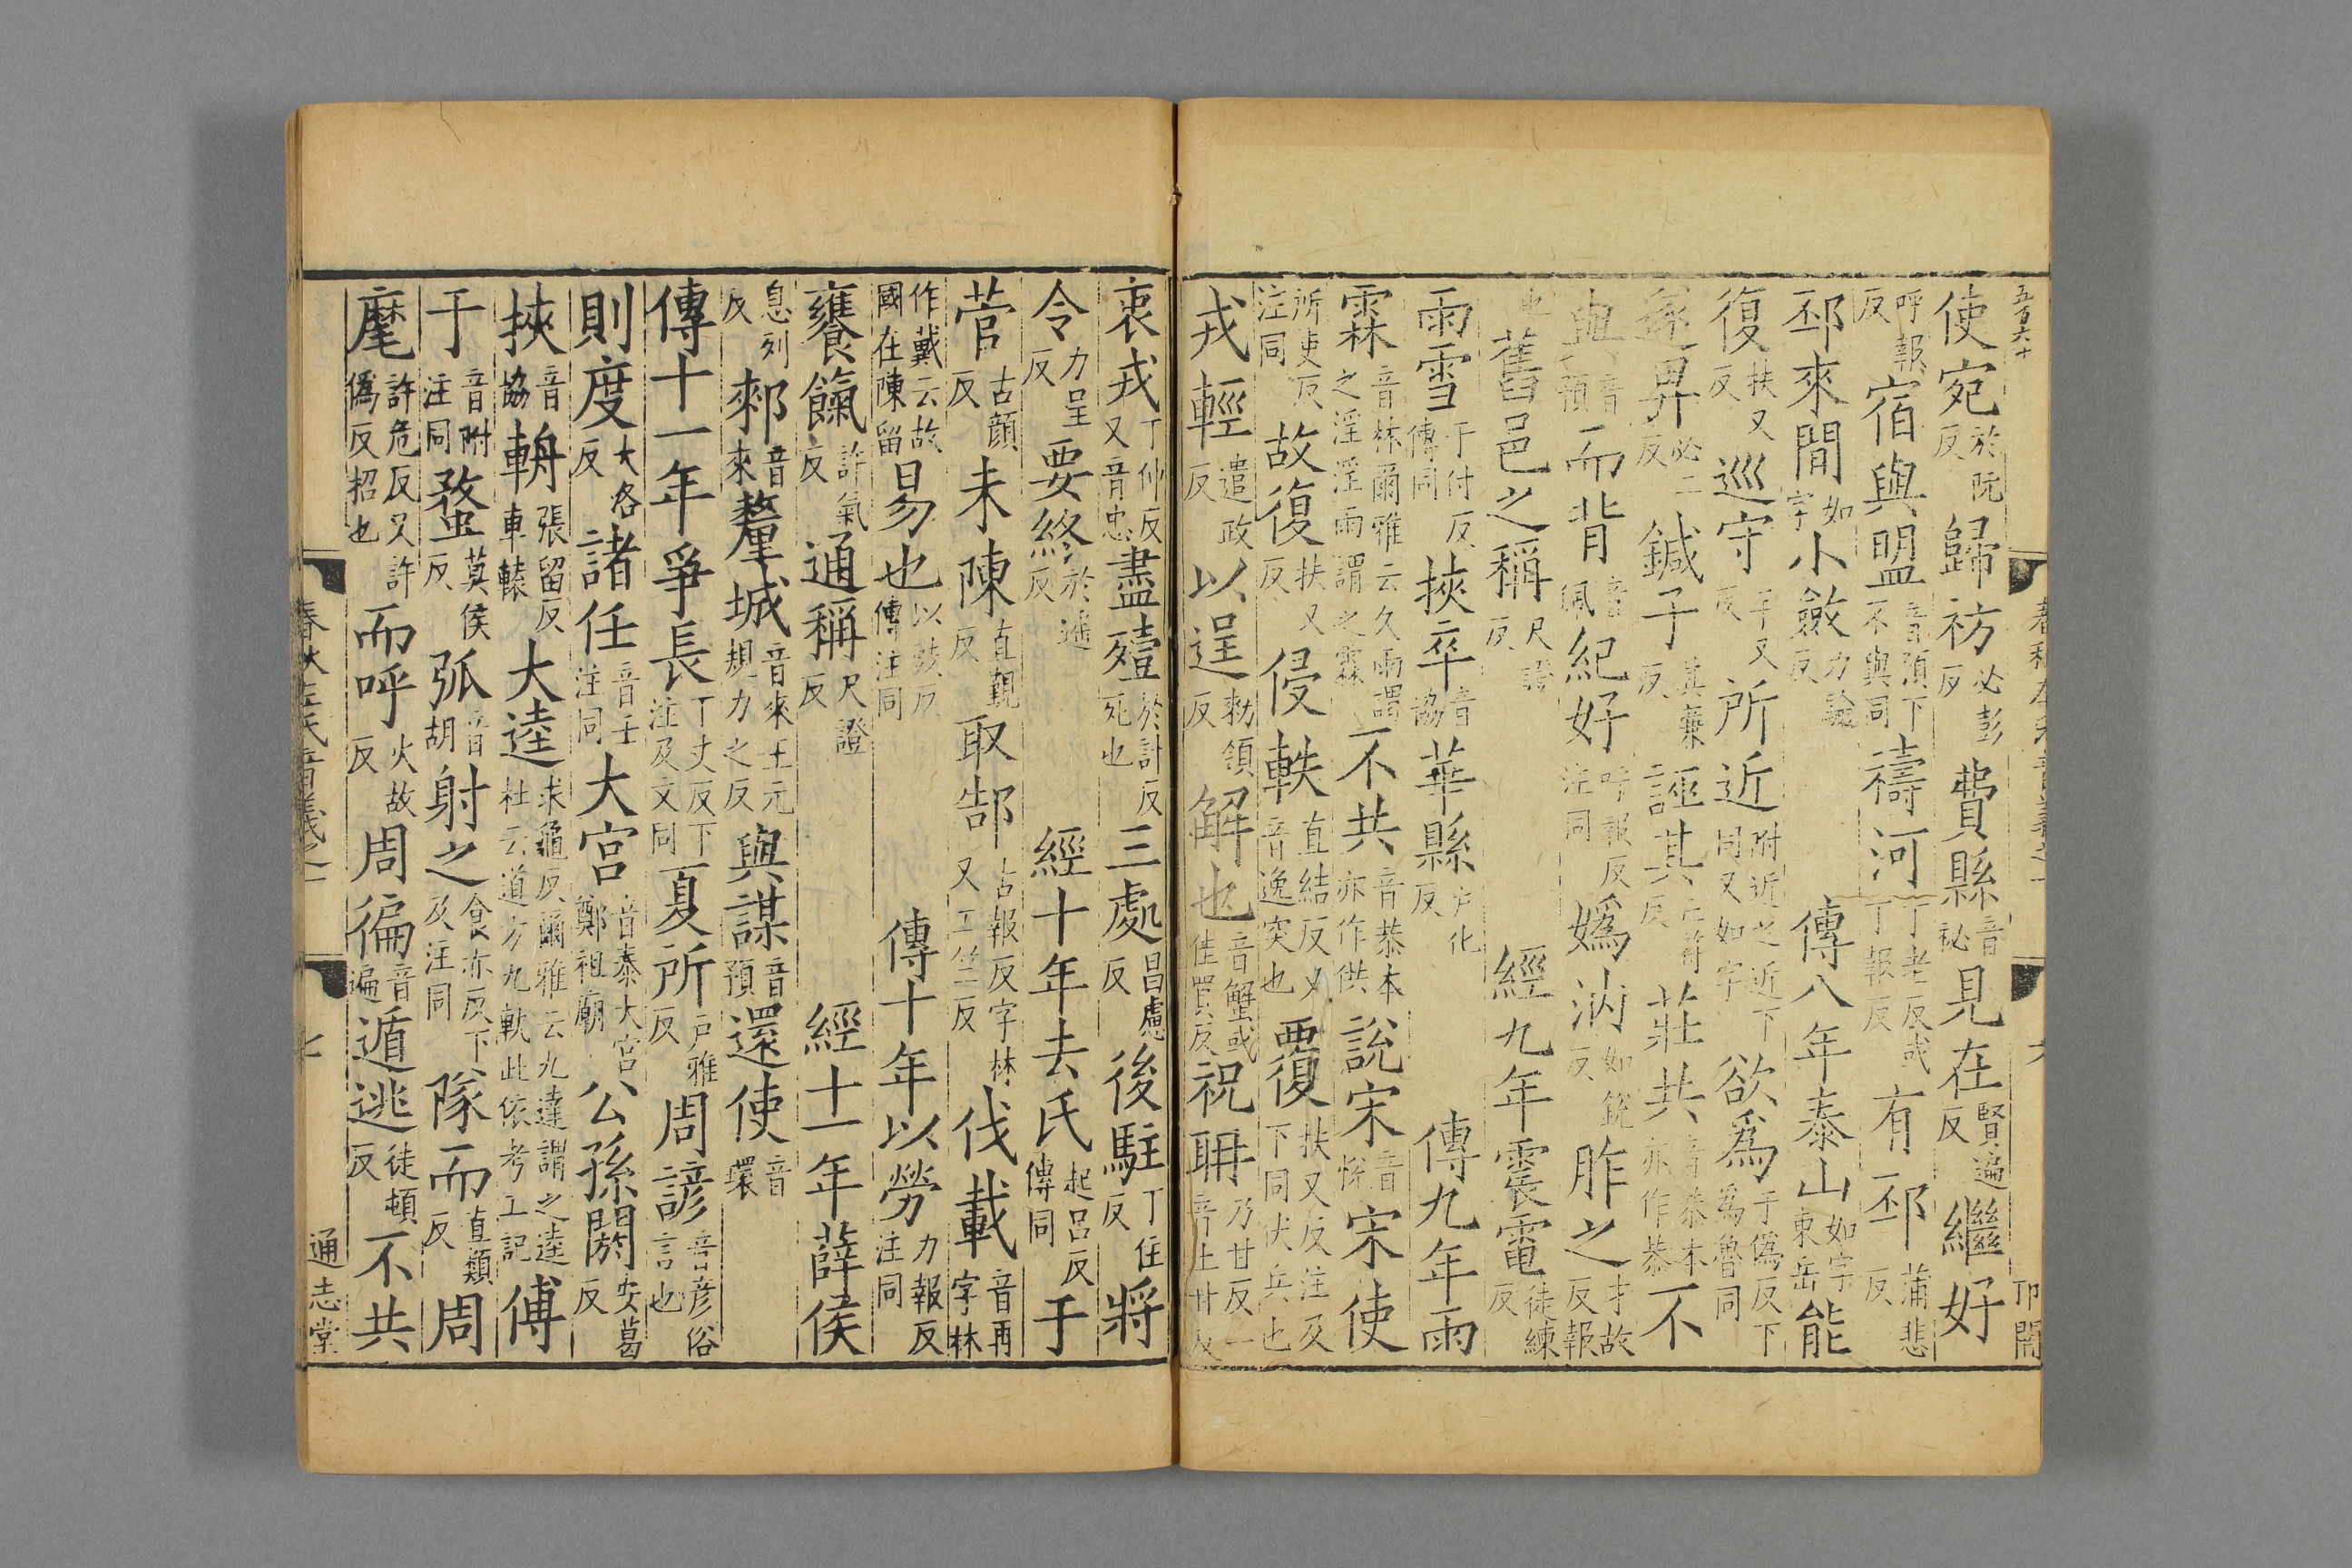 五百六十
使宛於阮反歸祊必彭反費縣音祕見在賢遍反繼好
呼報反宿與盟音預下不與同禱河丁老反或丁報反有邳蒲悲反
邳來間如字小斂力驗反傳八年泰山如字東岳能
復扶又反巡守手又反所近附近之近下同又如字欲爲于僞反下爲魯同
逐畀必二反鍼子其廉反誣其反莊共音恭本亦作恭不
與音預而背音佩紀好呼報反注同嬀汭如銳反胙之才故反報
也舊邑之稱尺證反經九年震電徒練反
雨雪于付反傳同挾卒音協華縣戶化反傳九年雨
霖音林爾雅云久雨謂之淫淫雨謂之霖不共音恭本亦作供說宋音悅宋使
所吏反注同故復扶又反侵軼直結反又音逸突也覆扶又反注及下同伏兵也
戎輕遣政反以逞勑領反解也音蟹或佳買反祝聃乃甘反一音土甘反
衷戎丁仲反又音忠盡殪於計反死也三處昌慮反後駐丁住反將
令力呈反要終於遙反經十年去氏起呂反傳同于
菅古顏反未陳直覲反取郜古報反字林又工竺反伐載音再字林
作戴云故國在陳留易也以豉反傳注同傳十年以勞力報反注同
饔餼許氣反通稱尺證反經十一年薛侯
息列反郲音來釐城音來王元規力之反與謀音預還使音環
傳十一年爭長丁丈反下注及文同夏所戶雅反周諺音彥俗言也
則度大洛反諸任音壬注同大宮音泰大宮鄭祖廟公孫閼安葛反
挾音協輈張留反車轅大逵求龜反爾雅云九達謂之逵杜云道方九軌此依考工記傅
于音附注同蝥莫侯反弧音胡射之食亦反下及注同隊而直類反周
麾許危反又許僞反招也而呼火故反周徧音遍遁逃徒頓反不共
春秋左氏音義之一 七 通志堂